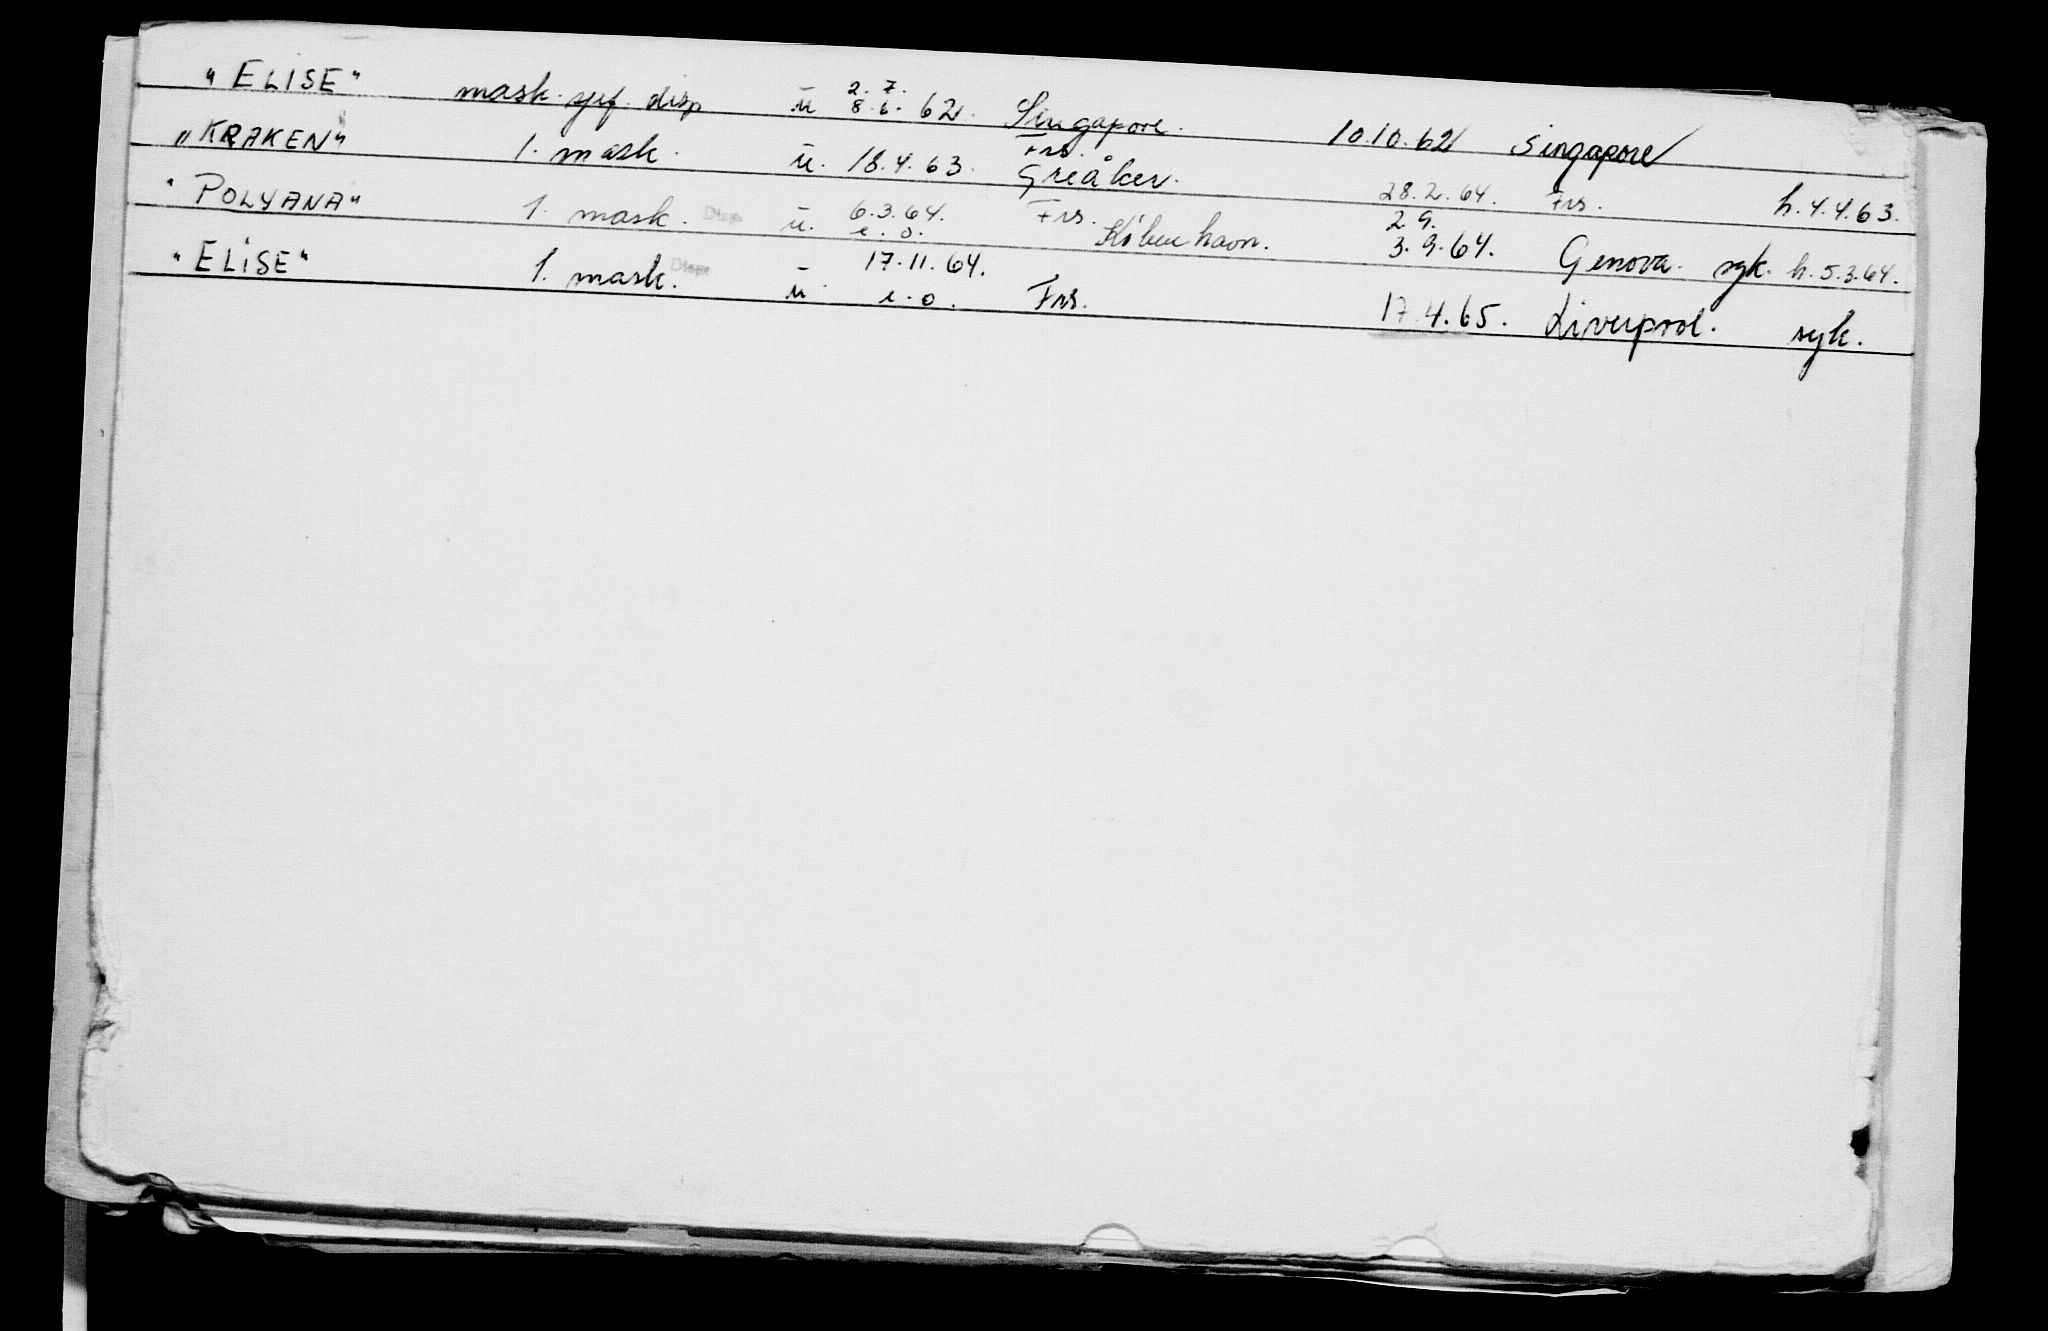 "ELISE" mask. sjef. disp ū 2.7. 8.6. 62. Singapore. 10.10.62 Singapore
"KRAKEN" 1. mask. ū. 18.4.63. Frs. Greåker. 28.2.64. Frs. h.4.4.63.
"POLYANA" 1. mask. Disp ū. 6.3.64. e.o. Frs. København. 2.9. 3.9.64. Genova. syk. h.5.3.64.
"ELISE" 1. mask. Disp ū 17.11.64. e.o. Frs. 17.4.65. Liverpool. syk.